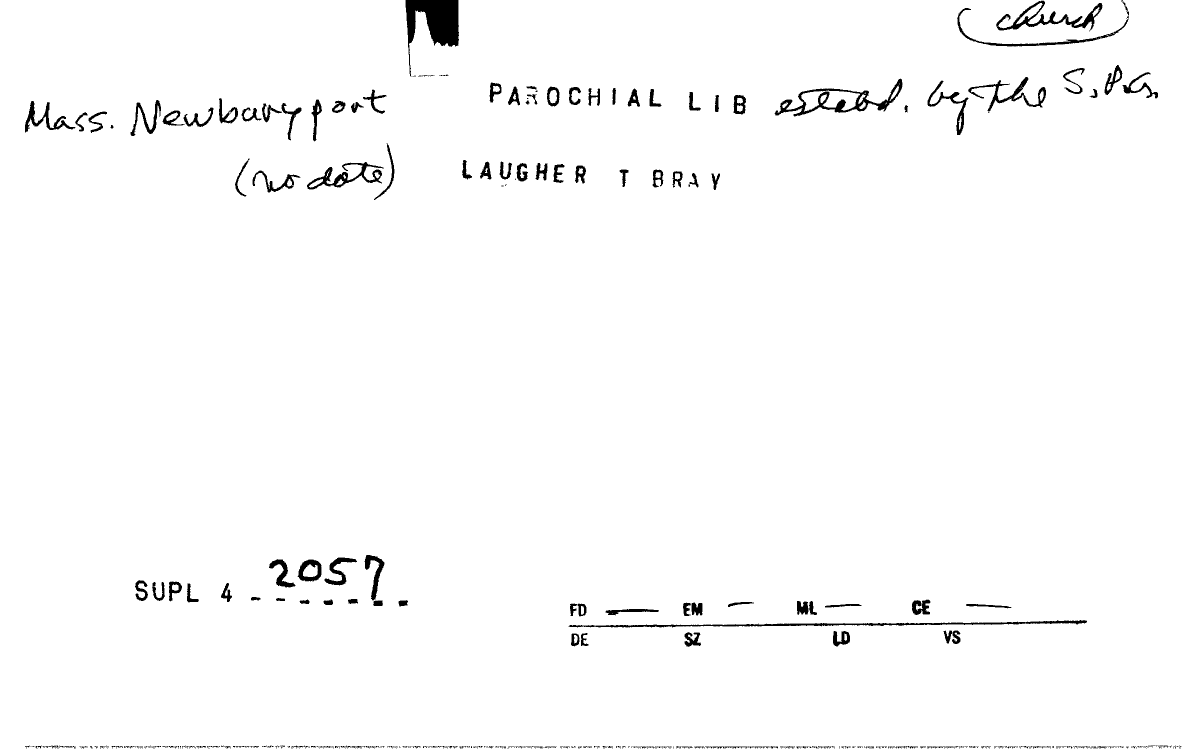 church
Mass. Newburyport PAROCHIAL LIB estabd. by the S.P.G.
(no date) LAUGHER T BRAY
SUPL 4 2057
FD — EM — ML — CE —
DE SZ LD VS